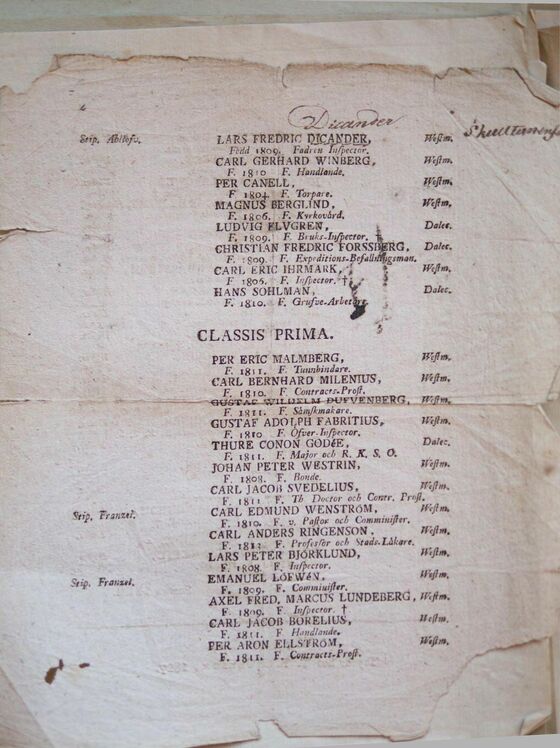 Dicander
Stip. Abllofv. LARS FREDRIC DICANDER, Westm.
Född 1809. Fadren Inspector.
CARL GERHARD WINBERG, Westm.
F. 1810 F. Handlande.
PER CANELL, Westm.
F. 1804. F. Torpare.
MAGNUS BERGLIND, Westm.
F. 1806. F. Kyrkovärd.
LUDVIG ELVGREN, Dalec.
F. 1809. F. Bruks-Inspector.
CHRISTIAN FREDRIC FORSSBERG, Dalec.
F. 1809. F. Expeditions-Befallningsman.
CARL ERIC IHRMARK, Westm.
F. 1806. F. Inspector. †
HANS SOHLMAN, Dalec.
F. 1810. F. Grufve-Arbetare.
CLASSIS PRIMA.
PER ERIC MALMBERG, Westm.
F. 1811. F. Tunnbindare.
CARL BERNHARD MILENIUS, Westm.
F. 1810. F. Contracts-Prost.
GUSTAF WILHELM DUFVENBERG, Westm.
F. 1811. F. Sämskmakare.
GUSTAF ADOLPH FABRITIUS, Westm.
F. 1810 F. Öfver-Inspector.
THURE CONON GODéE, Dalec.
F. 1811. F. Major och R. K. S. O.
JOHAN PETER WESTRIN, Westm.
F. 1808. F. Bonde.
CARL JACOB SVEDELIUS, Westm.
F. 1811 F. Th. Doctor och Contr. Prost.
Stip. Franzel. CARL EDMUND WENSTRÖM, Westm.
F. 1810. F. v. Pastor och Comminister.
CARL ANDERS RINGENSON, Westm.
F. 1812 F. Professor och Stads-Läkare.
LARS PETER BJÖRKLUND, Westm.
F. 1808. F. Inspector.
Stip. Franzel. EMANUEL LÖFWéN, Westm.
F. 1809. F. Comminister.
AXEL FRED. MARCUS LUNDEBERG, Westm.
F. 1809. F. Inspector. †
CARL JACOB BORELIUS, Westm.
F. 1811. F. Handlande.
PER ARON ELLSTRÖM, Westm.
F. 1811. F. Contracts-Prost.